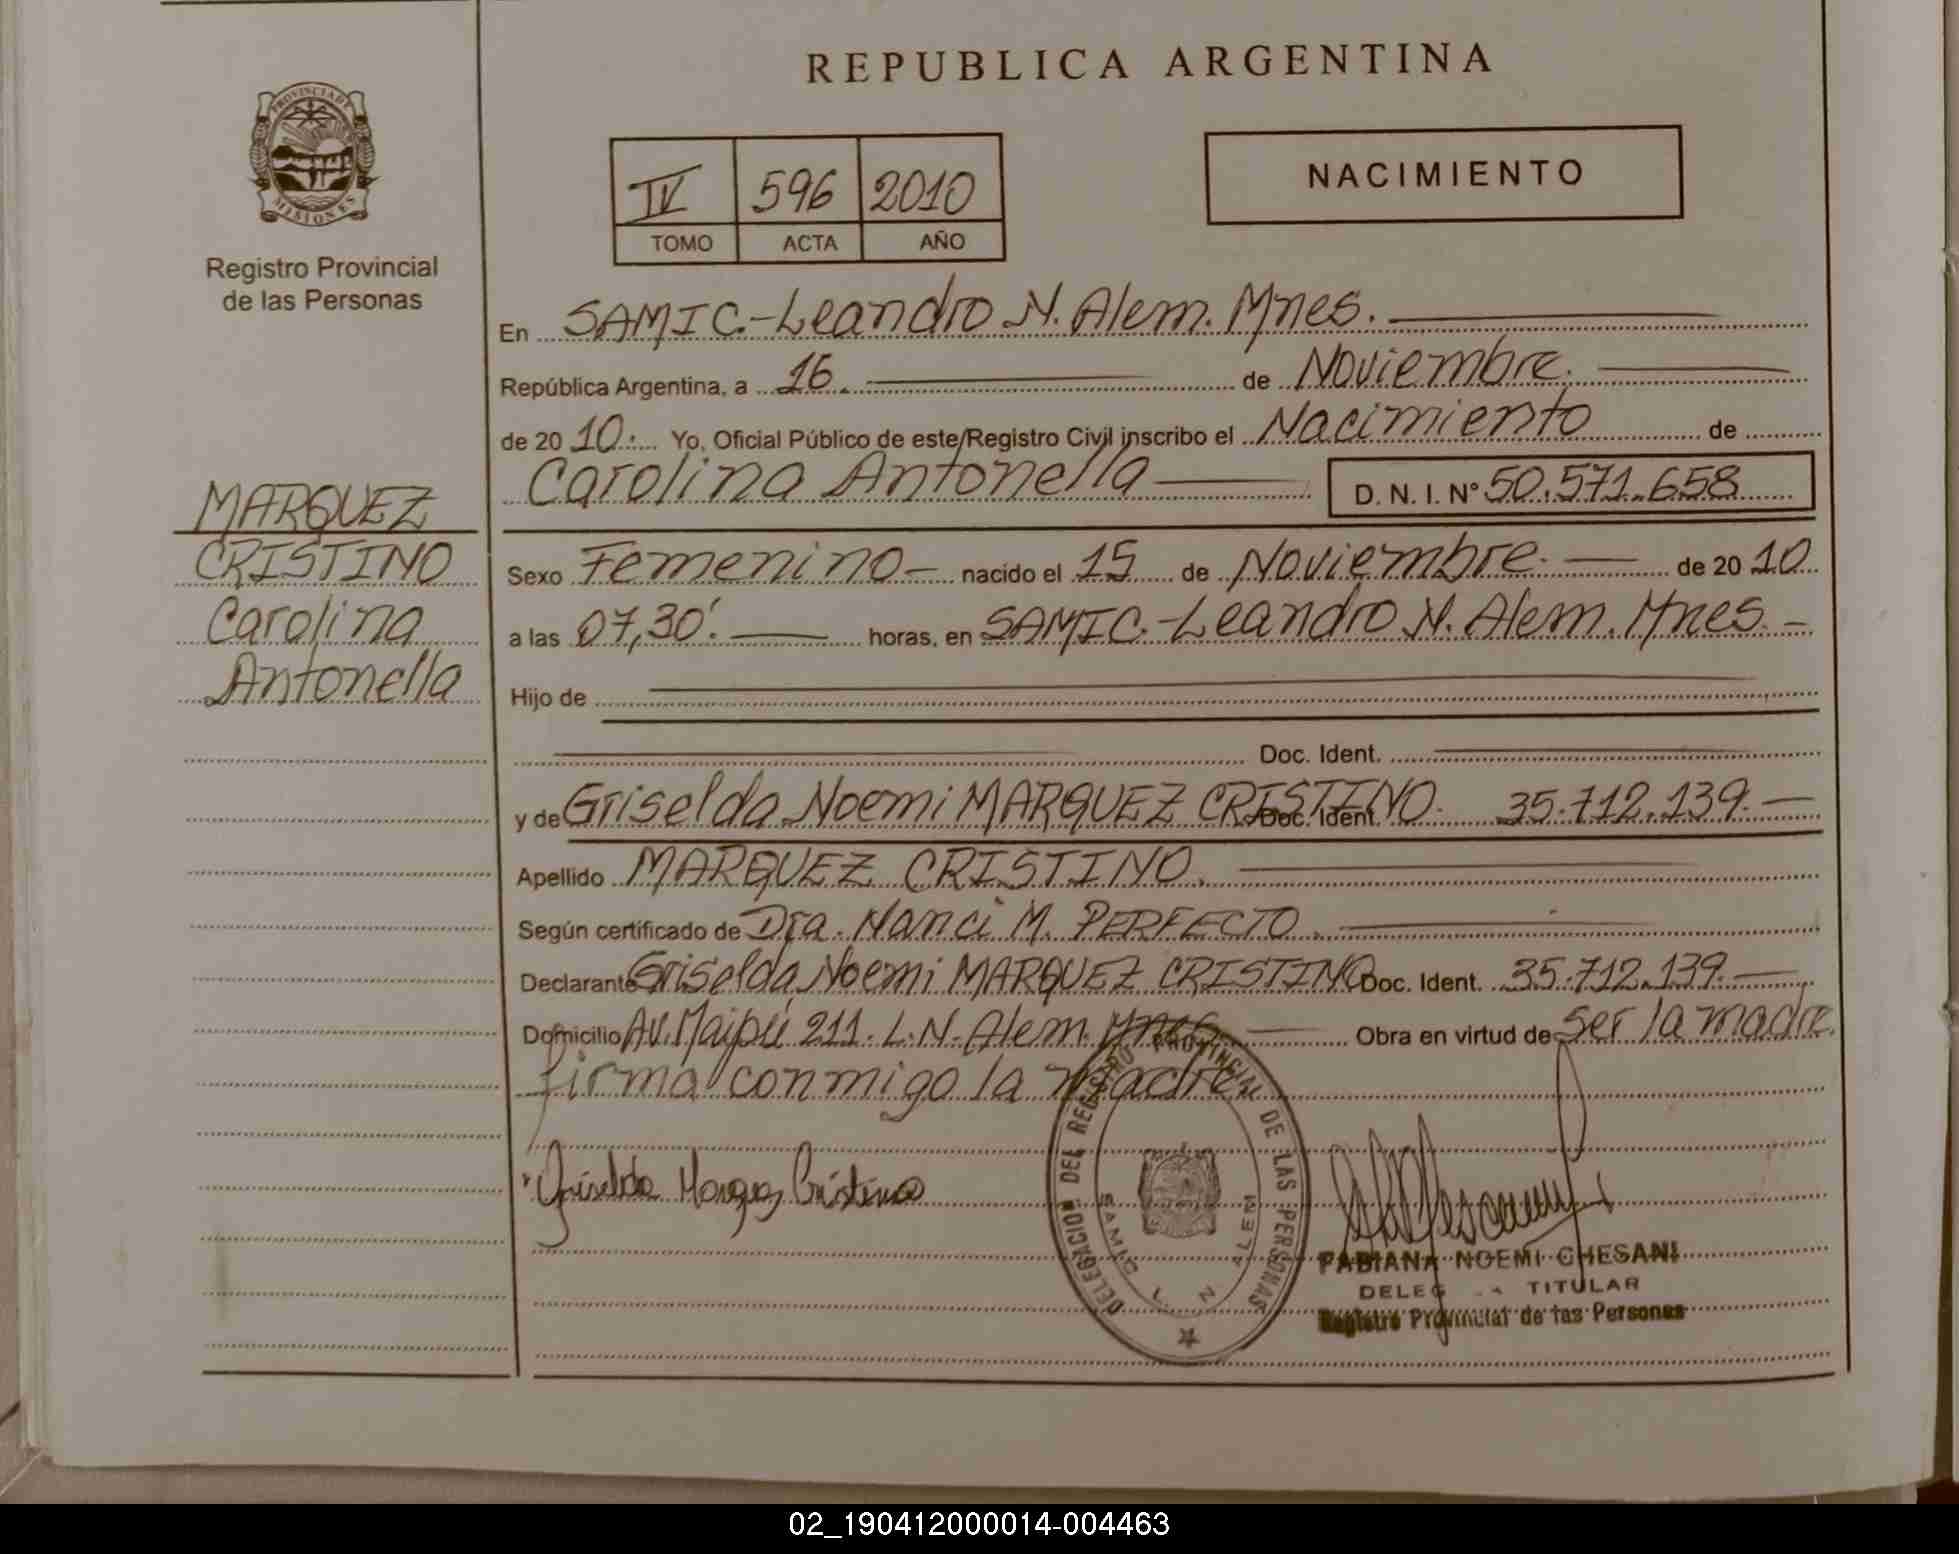 REPUBLICA ARGENTINA
PROVINCIA DE MISIONES
Registro Provincial
de las Personas
IV 596 2010
TOMO ACTA AÑO
NACIMIENTO
En SAMIC.-Leandro N. Alem. Mnes.
República Argentina, a 16. de Noviembre.
de 2010. Yo, Oficial Público de este Registro Civil inscribo el Nacimiento de
Carolina Antonella D. N. I. Nº 50.571.658
MARQUEZ
CRISTINO
Carolina
Antonella
Sexo Femenino nacido el 15 de Noviembre. de 2010
a las 07,30'. horas, en SAMIC.-Leandro N. Alem. Mnes.
Hijo de
Doc. Ident.
y de Griselda Noemi MARQUEZ CRISTINO. Doc. Ident. 35.712.139.
Apellido MARQUEZ CRISTINO.
Según certificado de Dra. Nanci M. PERFECTO.
Declarante Griselda Noemi MARQUEZ CRISTINO Doc. Ident. 35.712.139.
Domicilio Av. Maipú 211. L.N. Alem. Mnes. Obra en virtud de ser la madre.
firma conmigo la madre
Griselda Marquez Cristino
DELEGACION DEL REGISTRO PROVINCIAL DE LAS PERSONAS
SAMIC L N ALEM
FABIANA NOEMI CHESANI
TITULAR
Registro Provincial de las Personas
02_190412000014-004463